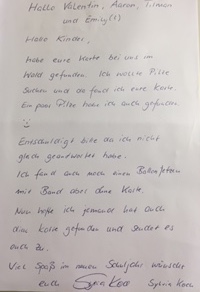 Hallo Valentin, Aaron, Tilman
und Emily(?)
Liebe Kinder,
habe eure Karte bei uns im
Wald gefunden. Ich wollte Pilze
suchen und da fand ich eure Karte.
Ein paar Pilze habe ich auch gefunden.
Entschuldigt bitte da ich nicht
gleich geantwortet habe.
Ich fand auch noch einen Ballonfetzen
mit Band aber ohne Karte.
Nun hoffe ich jemand hat auch
die Karte gefunden und sendet es
euch zu.
Viel Spaß im neuen Schuljahr wünscht
euch Sylvia Koch Sylvia Koch